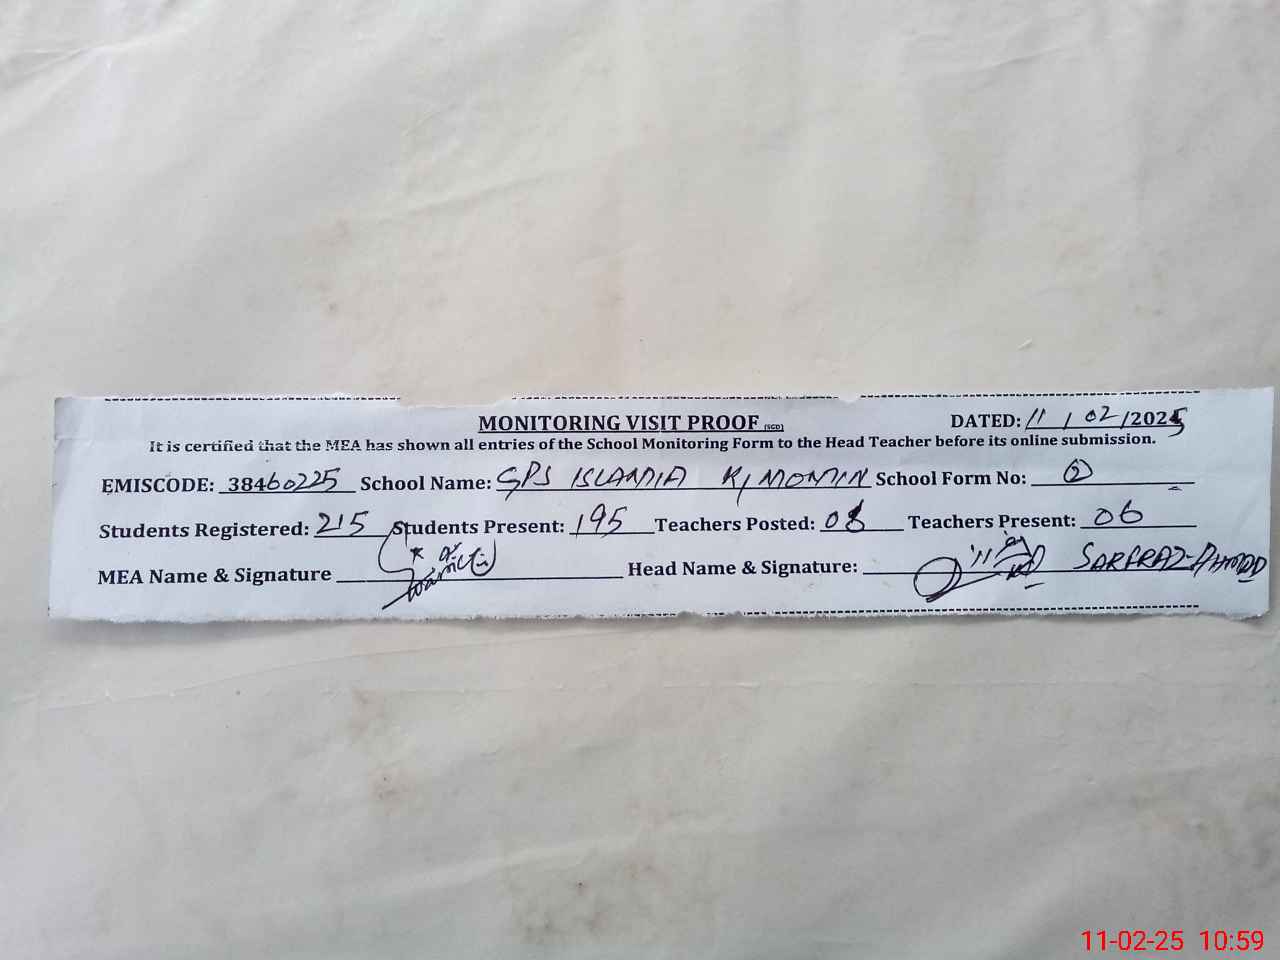 MONITORING VISIT PROOF (SGD) DATED: 11/02/2025
It is certified that the MEA has shown all entries of the School Monitoring Form to the Head Teacher before its online submission.
EMISCODE: 38460225 School Name: GPS ISLAMIA K, MOMIN School Form No: 2
Students Registered: 215 Students Present: 195 Teachers Posted: 08 Teachers Present: 06
MEA Name & Signature Head Name & Signature: SARFRAZ AHMAD
11-02-25 10:59